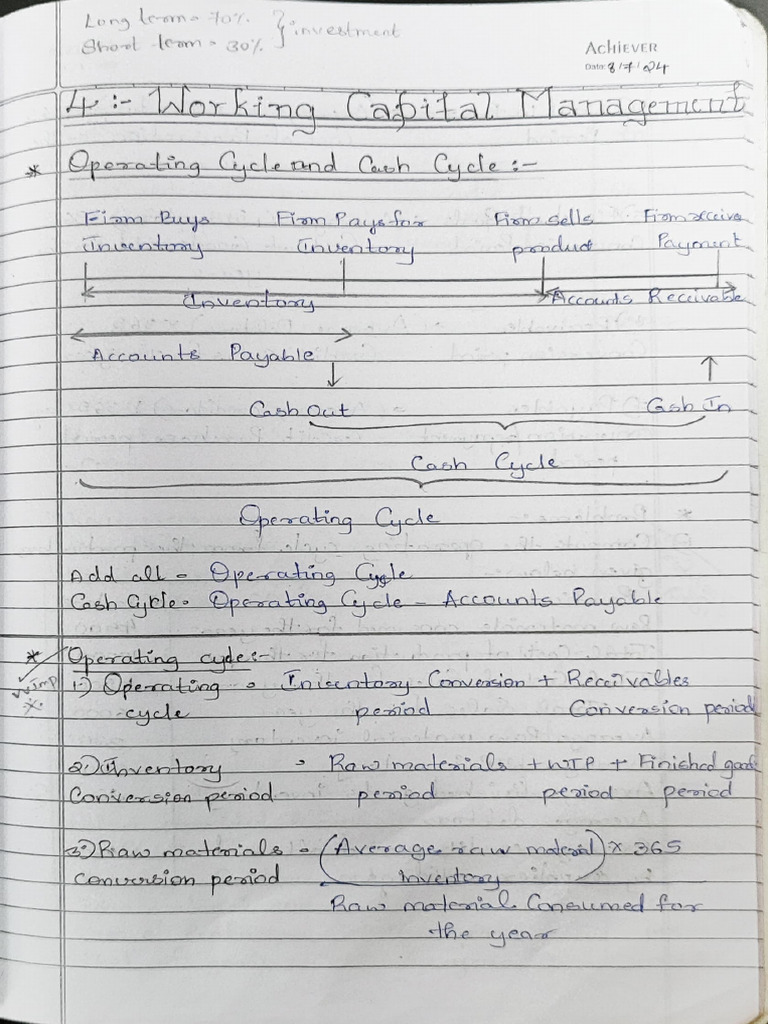 Long term = 70%
Short term = 30% } investment
ACHIEVER
Date: 8/7/24
4 :- Working Capital Management
* Operating Cycle and Cash Cycle :-
Firm Buys Firm Pays for Firm sells Firm receive
Inventory Inventory product Payment
Inventory Accounts Receivable
Accounts Payable
Cash Out Cash In
Cash Cycle
Operating Cycle
Add all = Operating Cycle
Cash Cycle = Operating Cycle - Accounts Payable
* Operating cycle :-
VVimp 1.) Operating = Inventory Conversion + Receivables
* cycle period Conversion period
2.) Inventory = Raw materials + WIP + Finished good
Conversion period period period period
3.) Raw materials = (Average raw material) x 365
conversion period inventory
Raw material Consumed for
the year